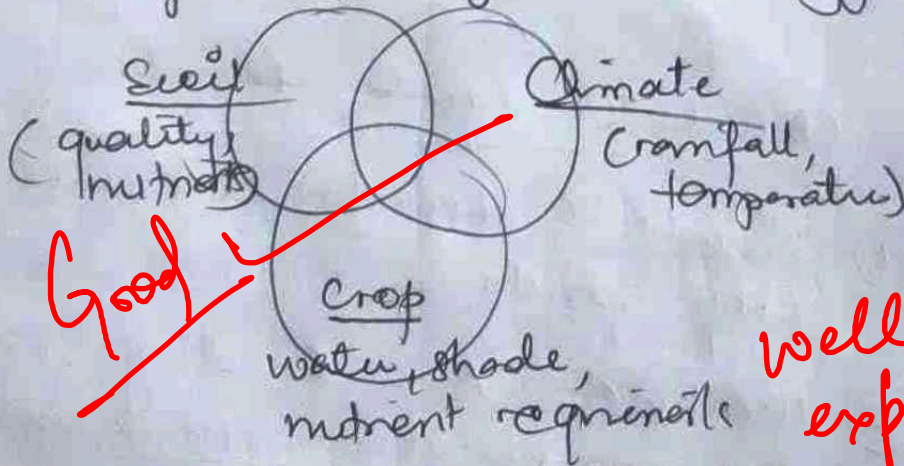 Soil
(quality,
nutrients)
Climate
(rainfall,
temperature)
Good
Crop
water, shade,
nutrient requirements
well
exp